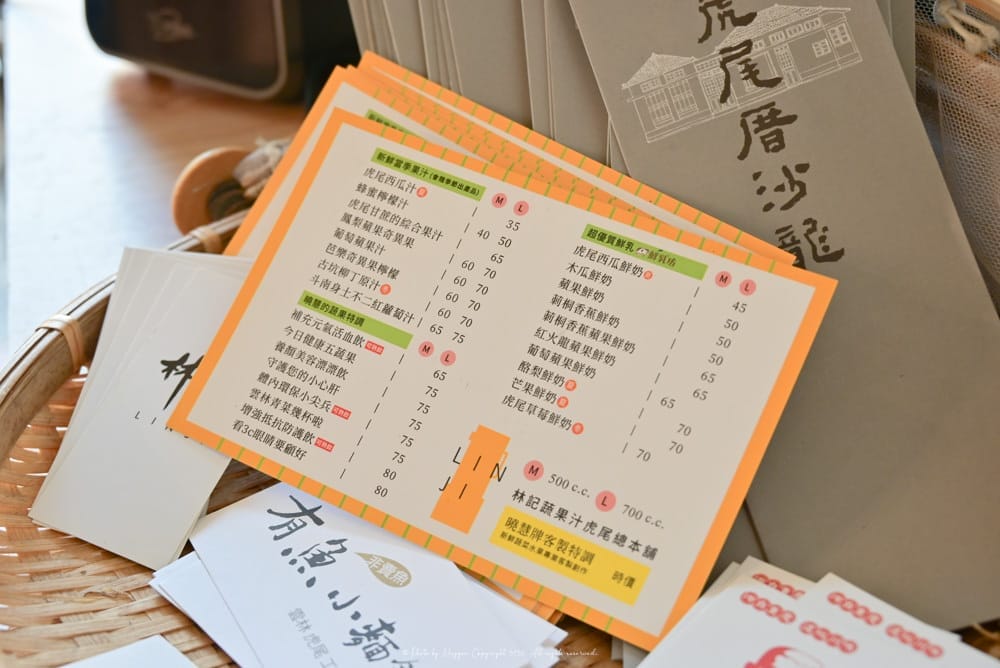 虎尾厝沙龍
新鮮當季果汁(會隨季節出產品) M L
虎尾西瓜汁 | 35
蜂蜜檸檬汁 40 50
虎尾甘蔗的綜合果汁 | 65
鳳梨蘋果奇異果 60 70
葡萄蘋果汁 60 70
芭樂奇異果檸檬 60 70
古坑柳丁原汁 60 70
斗南身土不二紅蘿蔔汁 65 75
曉慧的蔬果特調 M L
補充元氣活血飲 | 65
今日健康五蔬果 | 75
養顏美容漂漂飲 | 75
守護您的小心肝 | 75
體內環保小尖兵 | 75
雲林青菜幾杯啦 | 75
增強抵抗防護飲 | 80
看3c眼睛要顧好 | 80
超優質鮮乳 M L
虎尾西瓜鮮奶 | 45
木瓜鮮奶 | 50
蘋果鮮奶 | 50
莿桐香蕉鮮奶 | 50
莿桐香蕉蘋果鮮奶 | 65
紅火龍蘋果鮮奶 | 65
葡萄蘋果鮮奶 | 65
酪梨鮮奶 | 70
芒果鮮奶 | 70
虎尾草莓鮮奶 | 70
LIN
JI
M 500 c.c. L 700 c.c.
林記蔬果汁虎尾總本舖
曉慧牌客製特調
新鮮蔬菜水果專業客製創作 時價
林
有魚小麵
非賣魚
雲林 虎尾